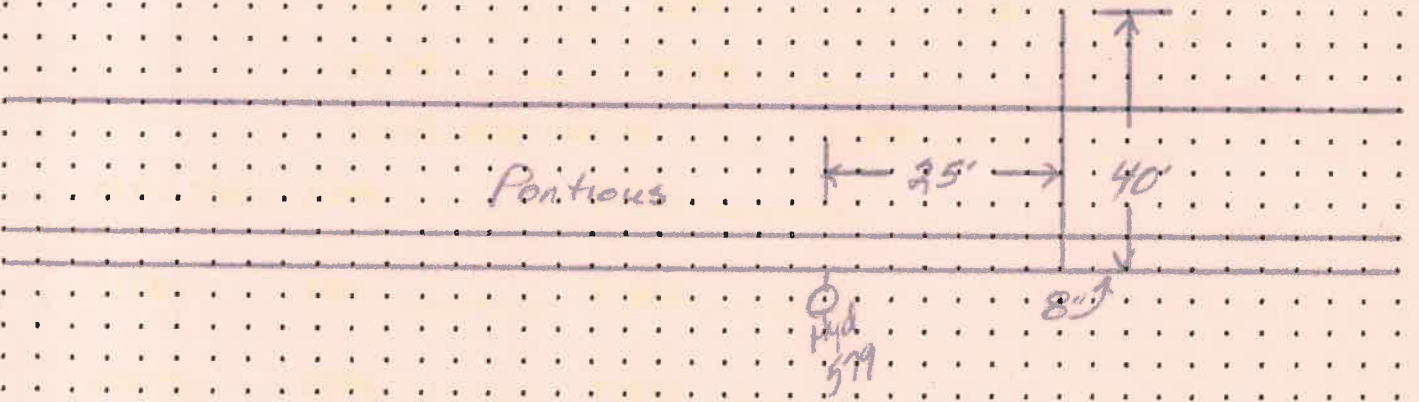 Pontious
25'
40'
8"
Hyd
579